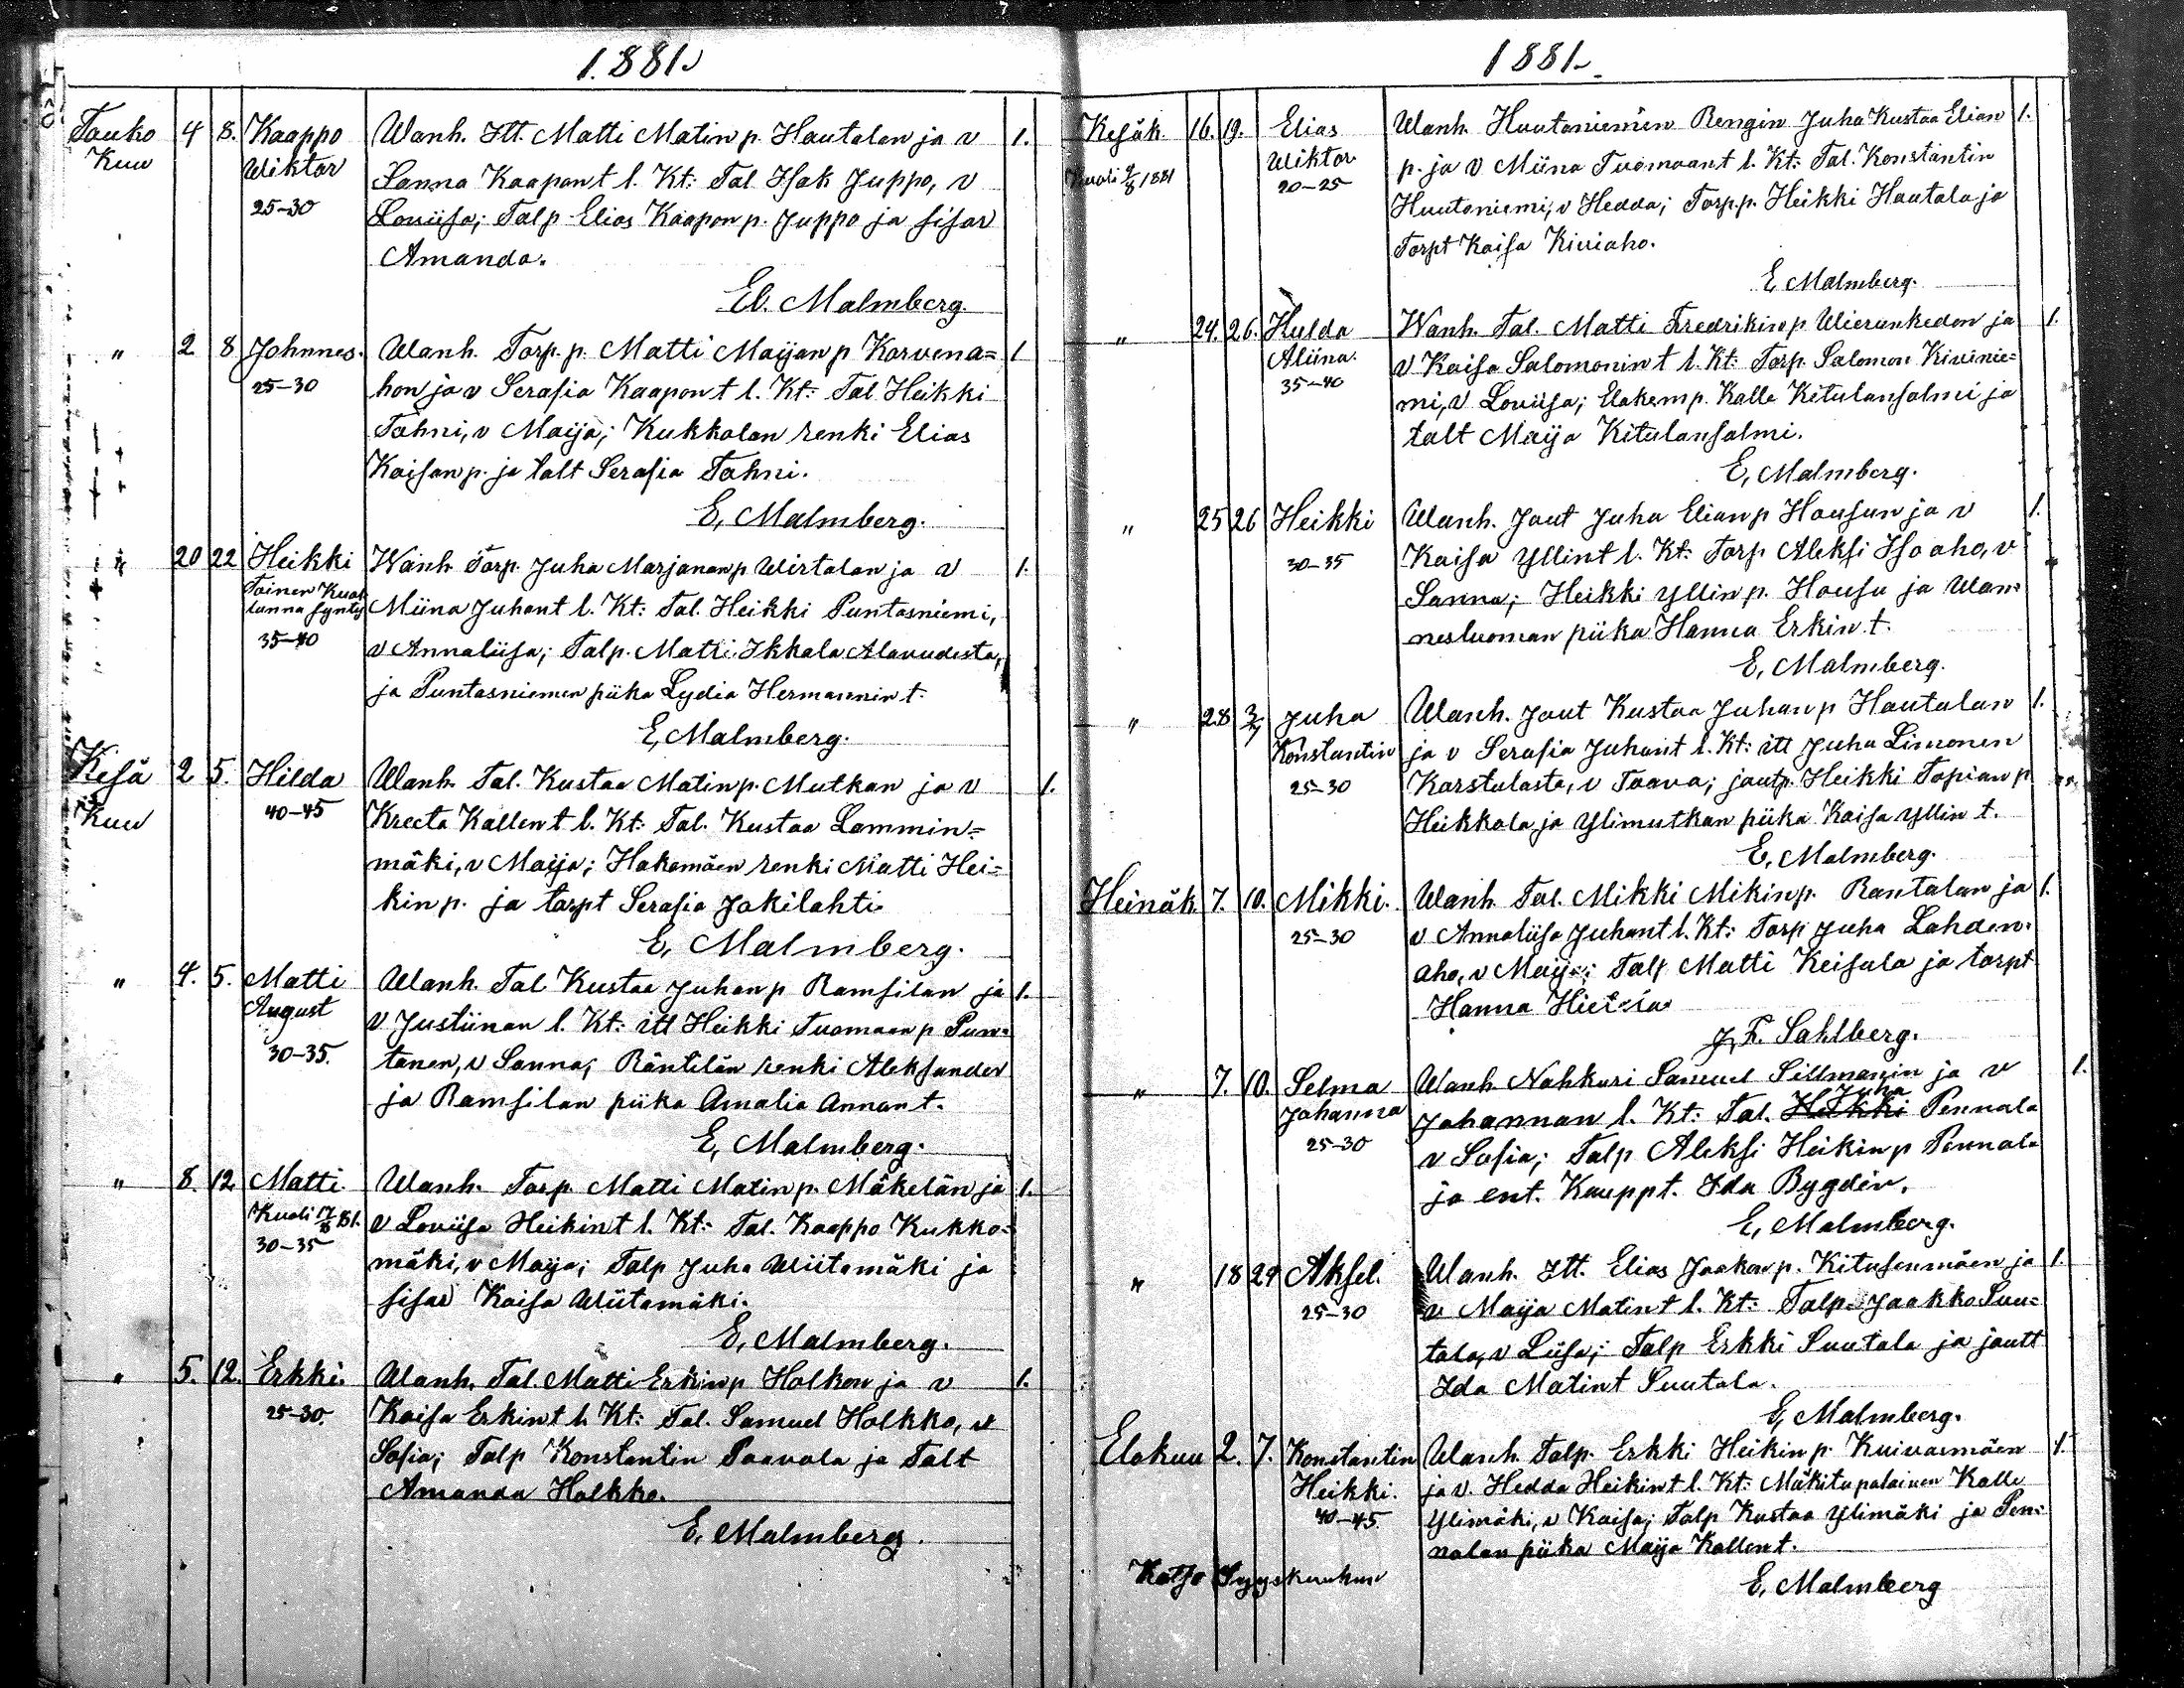 1881.
Touko 4 8. Kaappo Wanh. Itt. Matti Matin p. Hautalan ja v 1.
Kuu Wiktor Sanna Kaapon t l. Kt: Tal Isak Juppo, v
25-30 Lowiisa; Talp Elias Kaapon p. Juppo ja sisar
Amanda.
El. Malmberg.
" 2 8 Johnnes. Wanh. Torp. p. Matti Maijan p Korvena= 1
25-30 hon ja v Serafia Kaapon t l. Kt: Tal Heikki
Tohni, v Maija; Kukkolan renki Elias
Kaisan p. ja talt Serafia Tohni.
E, Malmberg.
" 20 22 Heikki Wanh Torp. Juha Marjanan p Wirtalan ja v 1.
Toinen Kuol
lunna synty Miina Juhan t l. Kt: Tal. Heikki Puntasniemi,
35-40 v Annaliisa; Talp. Matti Ikkala Alavudesta,
ja Puntasniemen piika Lydia Hermannin t.
E, Malmberg.
Kesä 2 5. Hilda Wanh. Tal. Kustaa Matin p. Mutkan ja v 1.
Kuu 40-45 Kreeta Kallen t l. Kt: Tal. Kustaa Lammin=
mäki, v Maija; Hakomäen renki Matti Hei=
kin p. ja torpt Serafia Jokilahti.
E, Malmberg.
" 4. 5. Matti Wanh. Tal Kustaa Juhan p Ramsilan ja 1.
August v Justiinan l. Kt: itt Heikki Tuomaan p Pun=
30-35. tanen, v Sanna; Räntilän renki Aleksander
ja Ramsilan piika Amalia Annan t.
E, Malmberg.
" 8. 12 Matti Wanh. Torp. Matti Matin p. Mäkelän ja 1.
Kuoli 17/8 81. v Lowiisa Heikin t l. Kt: Tal. Kaappo Kukko=
30-35 mäki, v Maija; Talp Juha Wiitamäki ja
sisar Kaisa Wiitamäki.
E, Malmberg.
" 5. 12. Erkki. Wanh. Tal. Matti Erkin p Holkon ja v 1.
25-30. Kaisa Erkin t l. Kt: Tal. Samuel Holkko, v
Sofia; Talp Konstantin Paavola ja Talt
Amanda Holkko.
E, Malmberg.
1881.
Kesäk. 16. 19. Elias Wanh. Huutoniemen Rengin Juha Kustaa Elian 1.
Kuoli 9/8 1881 Wiktor p. ja v Miina Tuomaan t l. Kt: Tal. Konstantin
20-25 Huutoniemi, v Hedda; Torp. p. Heikki Hautala ja
Torpt Kaisa Kiviaho.
E Malmberg.
" 24. 26. Hulda Wanh. Tal. Matti Fredrikin p. Wierunkedon ja 1.
Aliina. v Kaisa Salomonin t l. Kt: Torp. Salomon Kivinie=
35-40 mi, v Loviisa; Elakem p. Kalle Kitulansalmi ja
talt Maija Kitulansalmi.
E, Malmberg.
" 25 26 Heikki Wanh. Jout Juha Elian p Housun ja v 1.
30-35 Kaisa Yllin t l. Kt: Torp Aleksi Iso aho, v
Sanna; Heikki Yllin p. Housu ja Wan=
nesluoman piika Hanna Erkin t.
E, Malmberg.
" 28 3/7 Juha Wanh. Jout Kustaa Juhan p Hautalan 1.
Konstantin ja v Serafia Juhan t l. Kt: itt Juha Limonen
25-30 Karstulasta, v Taava; joutp. Heikki Topian p.
Heikkola ja Ylimutkan piika Kaisa Yllin t.
E, Malmberg.
Heinäk 7. 10. Mikki. Wanh. Tal. Mikki Mikin p. Rantalan ja 1.
25-30 v Annaliisa Juhan t l. Kt: Torp Juha Lahden=
aho, v Maija; Talp Matti Keisala ja torpt
Hanna
J, F. Sahlberg.
" 7. 10. Selma Wanh Nahkuri Samuel Sillmanin ja v 1.
Juha
Johanna Johannan l. Kt: Tal. Heikki Pennala
25-30 v Sofia; Talp Aleksi Heikin p Pennala
ja ent. Kauppt. Ida Bygdén.
E, Malmberg.
" 18 24 Aksel. Wanh. Itt. Elias Jaakon p. Kitusenmäen ja 1.
25-30 v Maija Matin t l. Kt: Talp. Jaakko Suu=
tala, v Liisa; Talp Erkki Suutala ja joutt
Ida Matint Suutala.
E, Malmberg.
Elokuu 2. 7. Konstantin Wanh. Talp. Erkki Heikin p. Kuivasmäen 1.
Heikki. ja v. Hedda Heikin t l. Kt: Mäkitupalainen Kalle
40-45. Ylimäki, v Kaisa; Talp Kustaa Ylimäki ja Pen=
nalan piika Maija Kallen t.
Katso Syyskuuhun
E, Malmberg